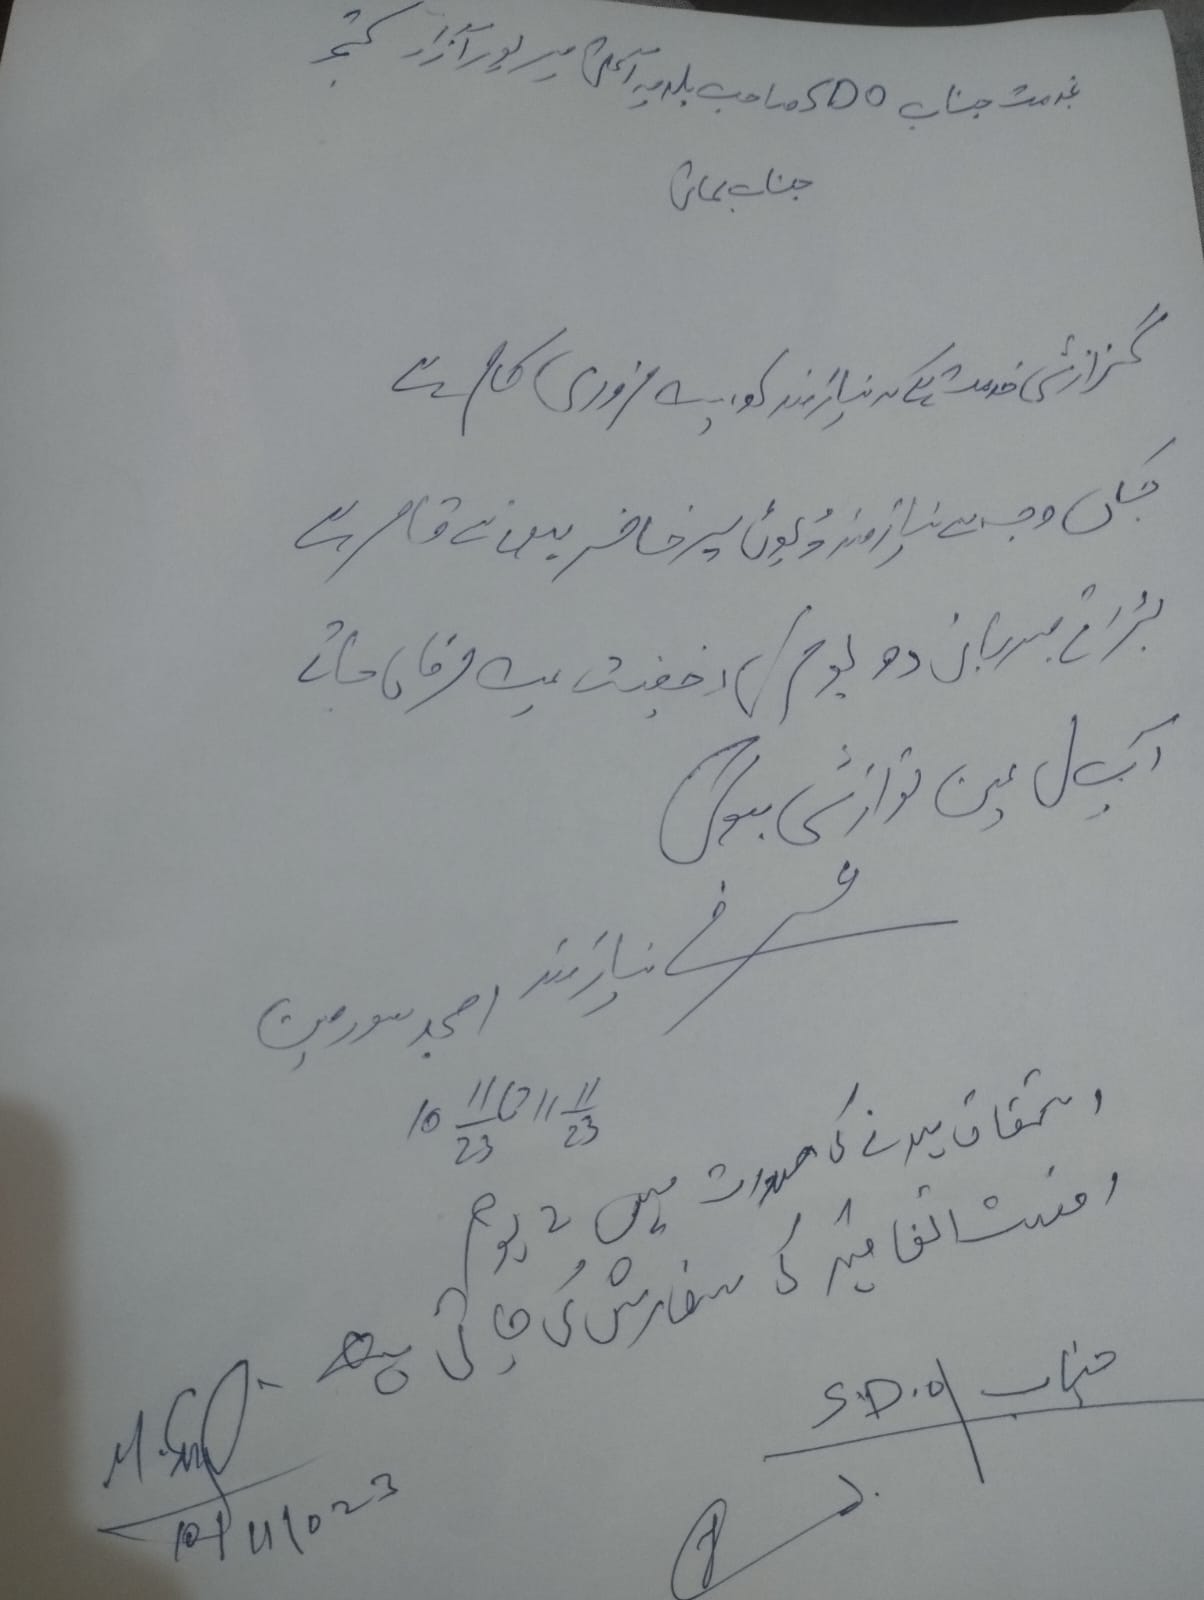 بخدمت جناب SDO صاحب بلدیہ میرپور آزاد کشمیر
جناب عالی
گزارش خدمت ہے کہ نیازمند کو ایک ضروری کام ہے
جسکی وجہ سے نیازمند ڈیوٹی پر حاضر ہونے سے قاصر ہے
برائے مہربانی دو یوم کی رخصت عنایت فرمائی جائے
آپ کی عین نوازش ہوگی
نیازمند امجد حسین
10 11/23 تا 11 11/23
استحقاق ہونے کی صورت میں 2 یوم
رخصت اتفاقیہ کی سفارش کی جاتی ہے
جناب S.D.O
10/11/023